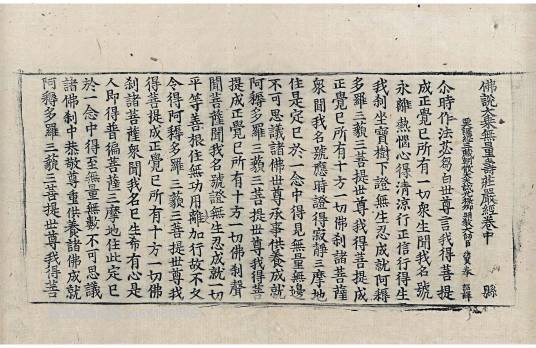 佛說大乘無量壽莊嚴經卷中 縣
尒時作法苾芻白世尊言我得菩提
成正覺已所有一切衆生聞我名號
永離熱惱心得清涼行正信行得生
我刹坐寶樹下證無生忍成就阿耨
多羅三藐三菩提世尊我得菩提成
正覺已所有十方一切佛刹諸菩薩
衆聞我名號應時證得寂靜三摩地
住是定已於一念中得見無量無邊
不可思議諸佛世尊承事供養成就
阿耨多羅三藐三菩提世尊我得菩
提成正覺已所有十方一切佛刹聲
聞菩薩聞我名號證無生忍成就一切
平等善根住無功用離加行故不久
令得阿耨多羅三藐三菩提世尊我
得菩提成正覺已所有十方一切佛
刹諸菩薩衆聞我名已生希有心是
人即得普徧菩薩三摩地住此定已
於一念中得至無量無數不可思議
諸佛刹中恭敬尊重供養諸佛成就
阿耨多羅三藐三菩提世尊我得菩